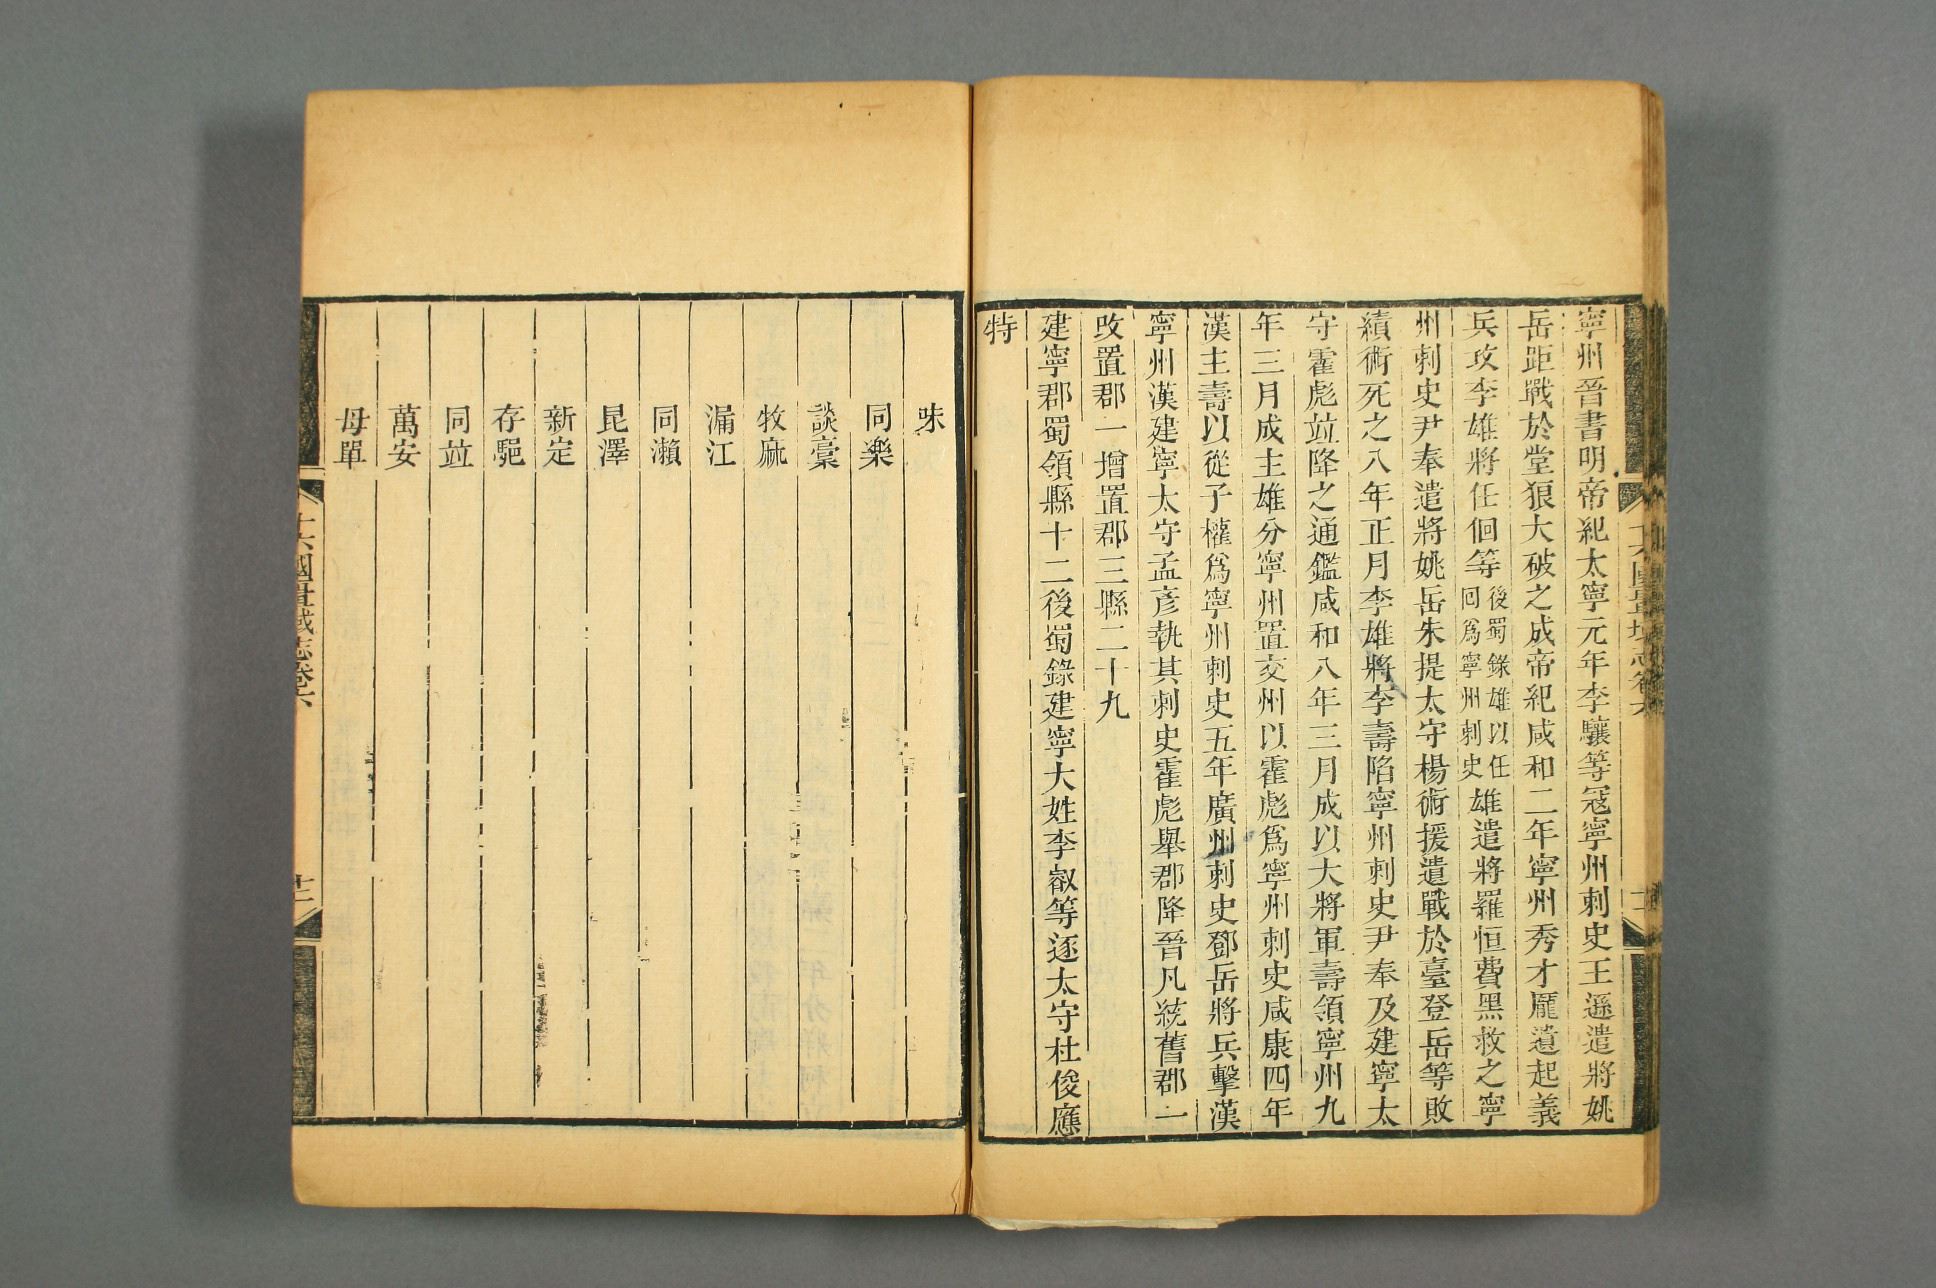 寧州晉書明帝紀太寧元年李驤等寇寧州刺史王遜遣將姚
岳距戰於堂狼大破之成帝紀咸和二年寧州秀才龐遺起義
兵攻李雄將任佪等後蜀錄雄以任回爲寧州刺史雄遣將羅恒費黑救之寧
州刺史尹奉遣將姚岳朱提太守楊術援遺戰於臺登岳等敗
績術死之八年正月李雄將李壽陷寧州刺史尹奉及建寧太
守霍彪竝降之通鑑咸和八年三月成以大將軍壽領寧州九
年三月成主雄分寧州置交州以霍彪爲寧州刺史咸康四年
漢主壽以從子權爲寧州刺史五年廣州刺史鄧岳將兵擊漢
寧州漢建寧太守孟彥執其刺史霍彪舉郡降晉凡統舊郡一
改置郡一增置郡三縣二十九
建寧郡蜀領縣十二後蜀錄建寧大姓李叡等逐太守杜俊應
特
味
同樂
談稾
牧麻
漏江
同瀨
昆澤
新定
存䣕
同竝
萬安
母單
十六國疆域志卷六
十二